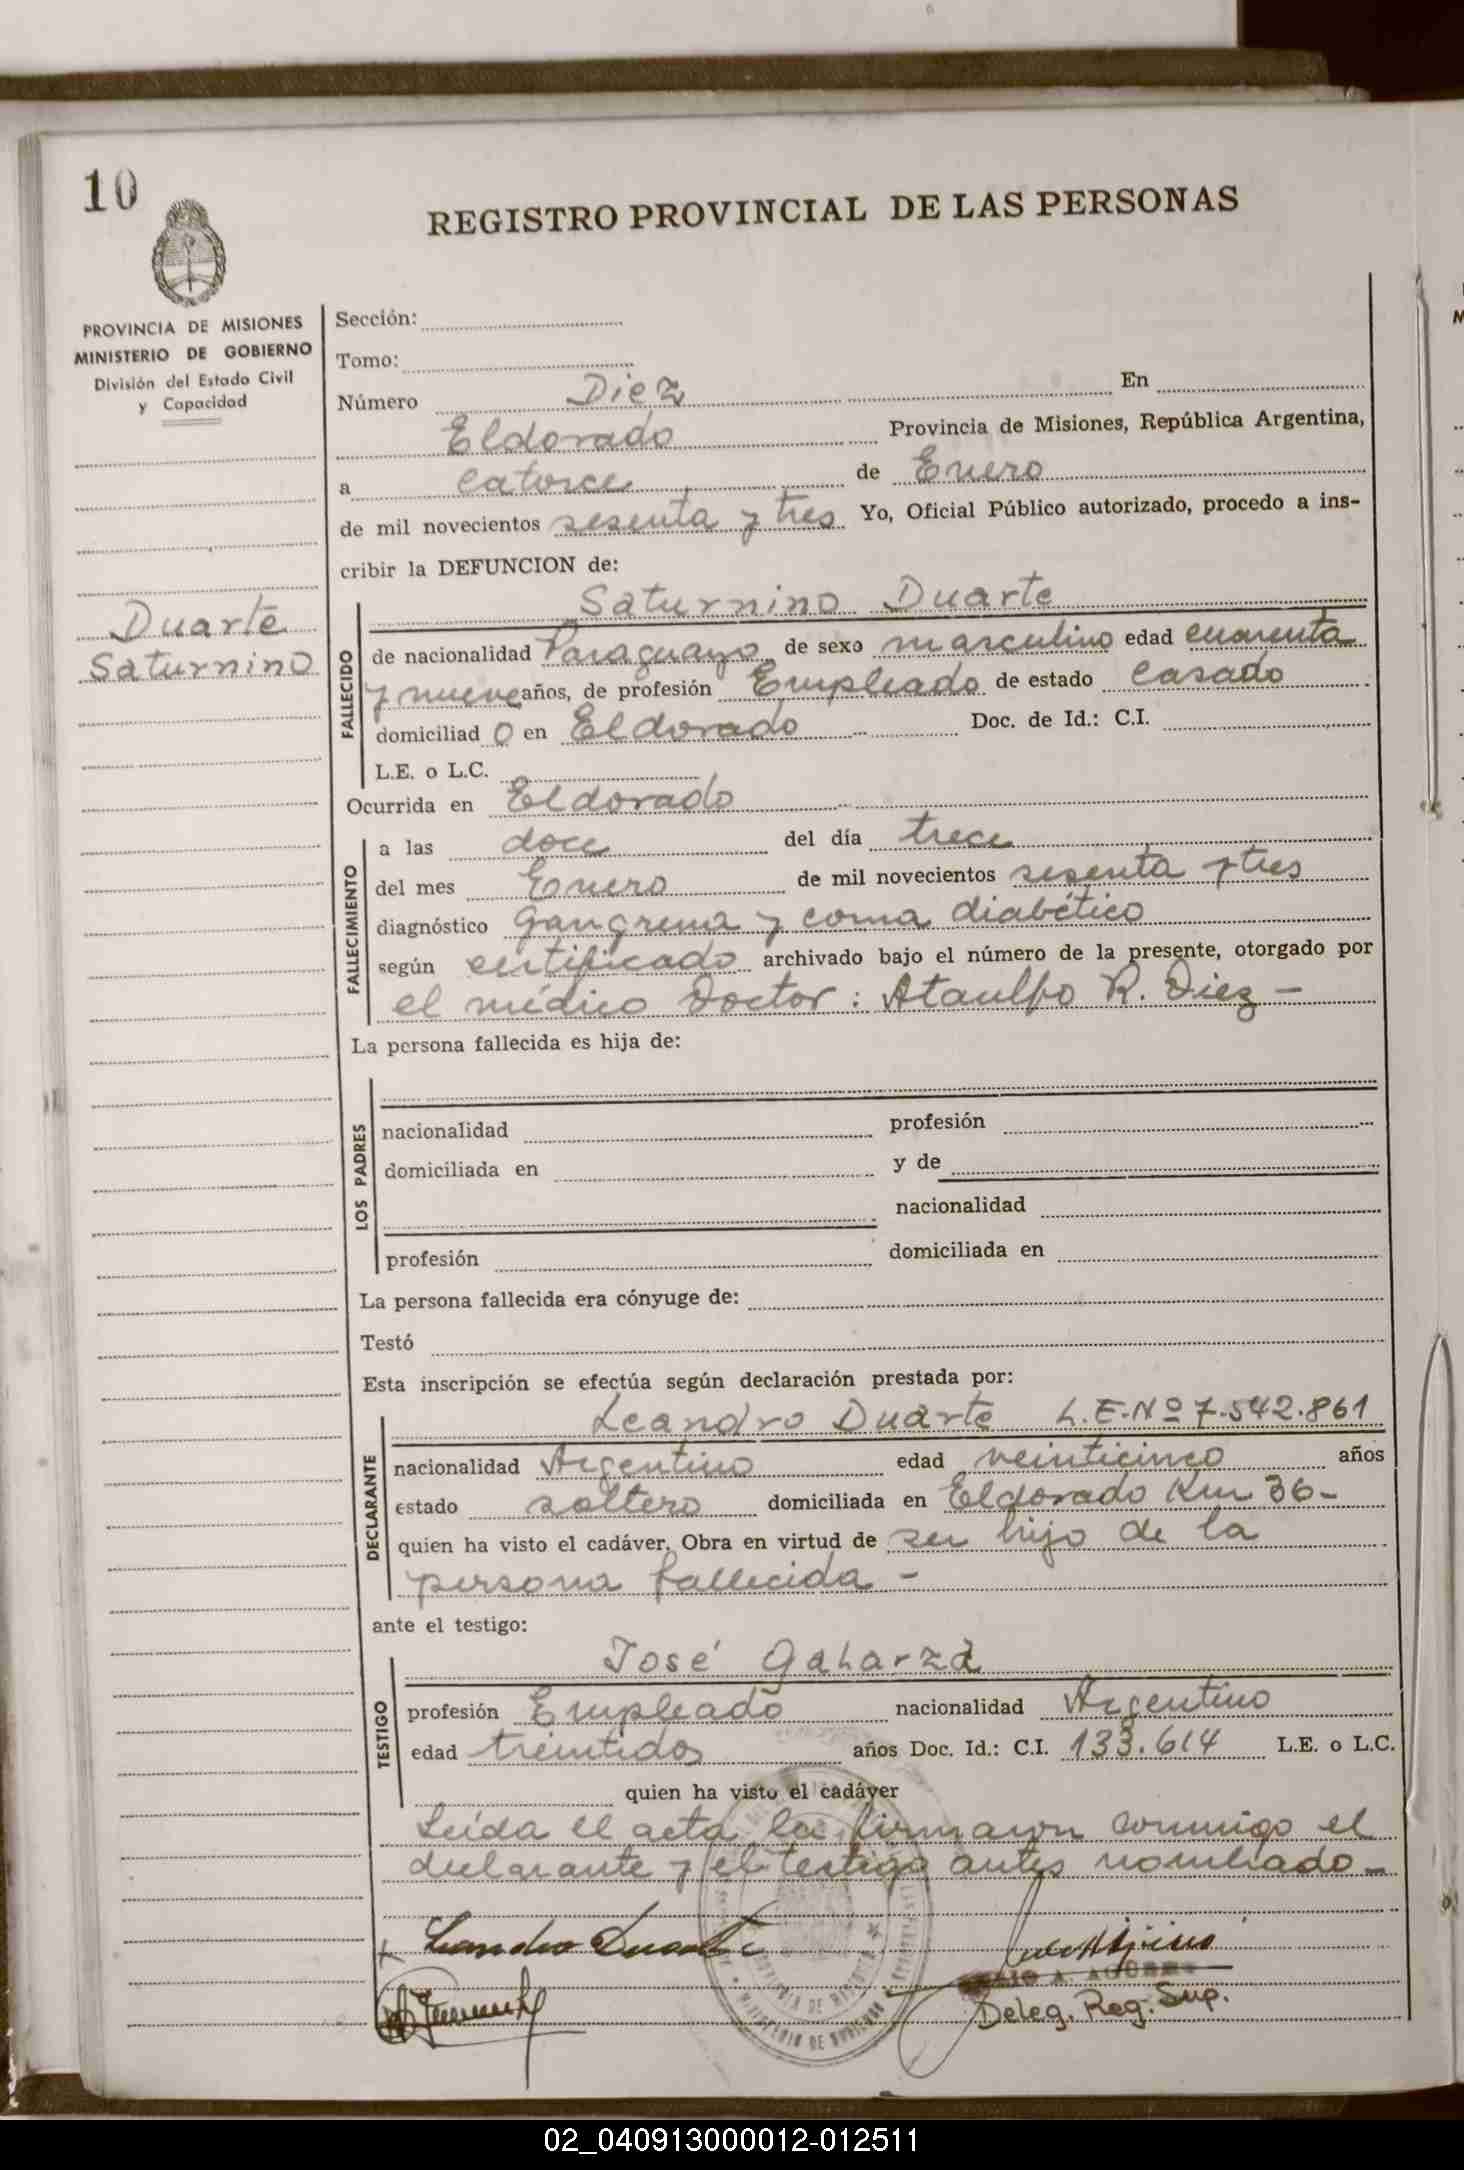 10
REGISTRO PROVINCIAL DE LAS PERSONAS
PROVINCIA DE MISIONES
MINISTERIO DE GOBIERNO
División del Estado Civil
y Capacidad
Duarte
Saturnino
Sección:
Tomo:
Número Diez En
Eldorado Provincia de Misiones, República Argentina,
a catorce de Enero
de mil novecientos sesenta y tres Yo, Oficial Público autorizado, procedo a ins-
cribir la DEFUNCION de:
FALLECIDO
Saturnino Duarte
de nacionalidad Paraguayo de sexo masculino edad cuarenta
y nueve años, de profesión Empleado de estado casado
domiciliad o en Eldorado Doc. de Id.: C.I.
L.E. o L.C.
Ocurrida en Eldorado
FALLECIMIENTO
a las doce del día trece
del mes Enero de mil novecientos sesenta y tres
diagnóstico gangrena y coma diabético
según certificado archivado bajo el número de la presente, otorgado por
el médico Doctor: Ataulfo R. Diez -
La persona fallecida es hija de:
LOS PADRES
nacionalidad profesión
domiciliada en y de
nacionalidad
profesión domiciliada en
La persona fallecida era cónyuge de:
Testó
Esta inscripción se efectúa según declaración prestada por:
DECLARANTE
Leandro Duarte L.E.Nº 7.542.861
nacionalidad Argentino edad veinticinco años
estado soltero domiciliada en Eldorado Km 36-
quien ha visto el cadáver. Obra en virtud de ser hijo de la
persona fallecida -
ante el testigo:
TESTIGO
José Galarza
profesión Empleado nacionalidad Argentino
edad treintidos años Doc. Id.: C.I. 133.614 L.E. o L.C.
quien ha visto el cadáver
Leída el acta la firmaron conmigo el
declarante y el testigo antes nombrado-
Leandro Duarte
Deleg. Reg. Sup.
PROVINCIA DE MISIONES
MINISTERIO DE GOBIERNO
02_040913000012-012511